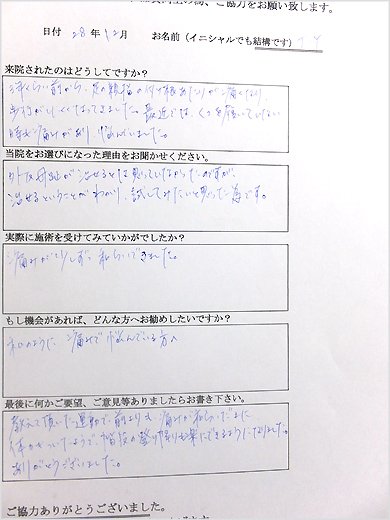 ご協力をお願い致します。
日付 28年12月 お名前(イニシャルでも結構です)
来院されたのはどうしてですか?
前から、足の親指の付け根あたりが痛くなり、
歩行がしにくくなってきました。最近では、くつを履いていない
時も痛みがあり、悩んでいました。
当院をお選びになった理由をお聞かせください。
外反母趾が治せるとは思っていなかったのですが、
治せるということがわかり、試してみたいと思った為です。
実際に施術を受けてみていかがでしたか?
痛みが少しずつ和らいできました。
もし機会があれば、どんな方へお勧めしたいですか?
私のように痛みで悩んでいる方へ
最後に何かご要望、ご意見等ありましたらお書き下さい。
教えて頂いた運動で前よりも痛みが和らいだ
階段の登り降りも楽にできるようになりました。
ありがとうございました。
ご協力ありがとうございました。